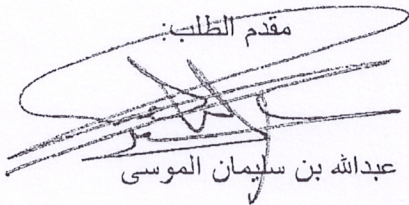 مقدم الطلب:
عبدالله بن سليمان الموسى